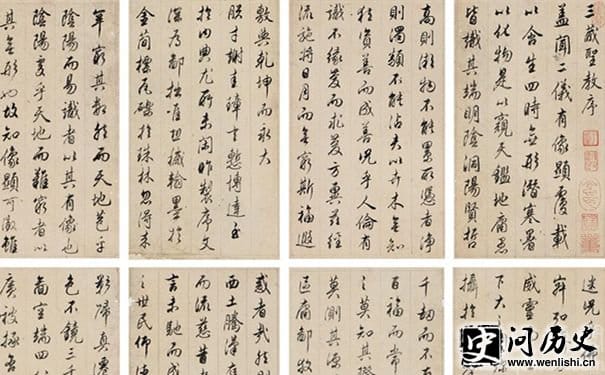 三藏聖教序
盖聞二儀有像顯覆載
以含生四時無形潛寒暑
以化物是以窺天鑑地庸愚
皆識其端明陰洞陽賢哲
高則微物不能累所憑者淨
則濁類不能沾夫以卉木無知
猶資善而成善況乎人倫有
識不緣慶而求慶方冀茲經
流施將日月而無窮斯福遐
敷與乾坤而永大
朕才謝珪璋言慙博達至
於內典尤所未閑昨製序文
深為鄙拙唯恐穢翰墨於
金簡標瓦礫於珠林忽得來
罕窮其數然而天地苞乎
陰陽而易識者以其有像也
陰陽處乎天地而難窮者以
其無形也故知像顯可徵雖
迷況乎佛
威靈而
下大之
攝於
千劫而不
百福而長
之莫知其際
莫測其源
區庸鄙投
惑者哉然則
西土騰漢庭
而流慈昔者
言未馳而成
之世民仰德
影歸真遷
色不鏡三千
圖空端四八
廣被拯含
史问历史
www.wenlishi.cn